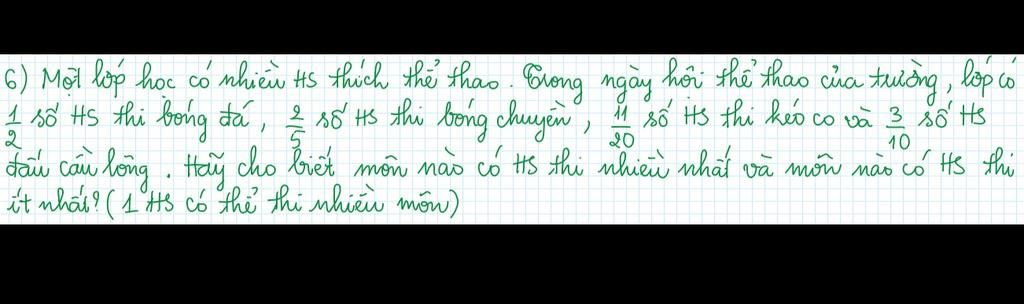 6) Một lớp học có nhiều HS thích thể thao. Trong ngày hội thể thao của trường, lớp có
1/2 số HS thi bóng đá, 2/5 số HS thi bóng chuyền, 11/20 số HS thi kéo co và 3/10 số HS
đấu cầu lông. Hãy cho biết môn nào có HS thi nhiều nhất và môn nào có HS thi
ít nhất? (1 HS có thể thi nhiều môn)